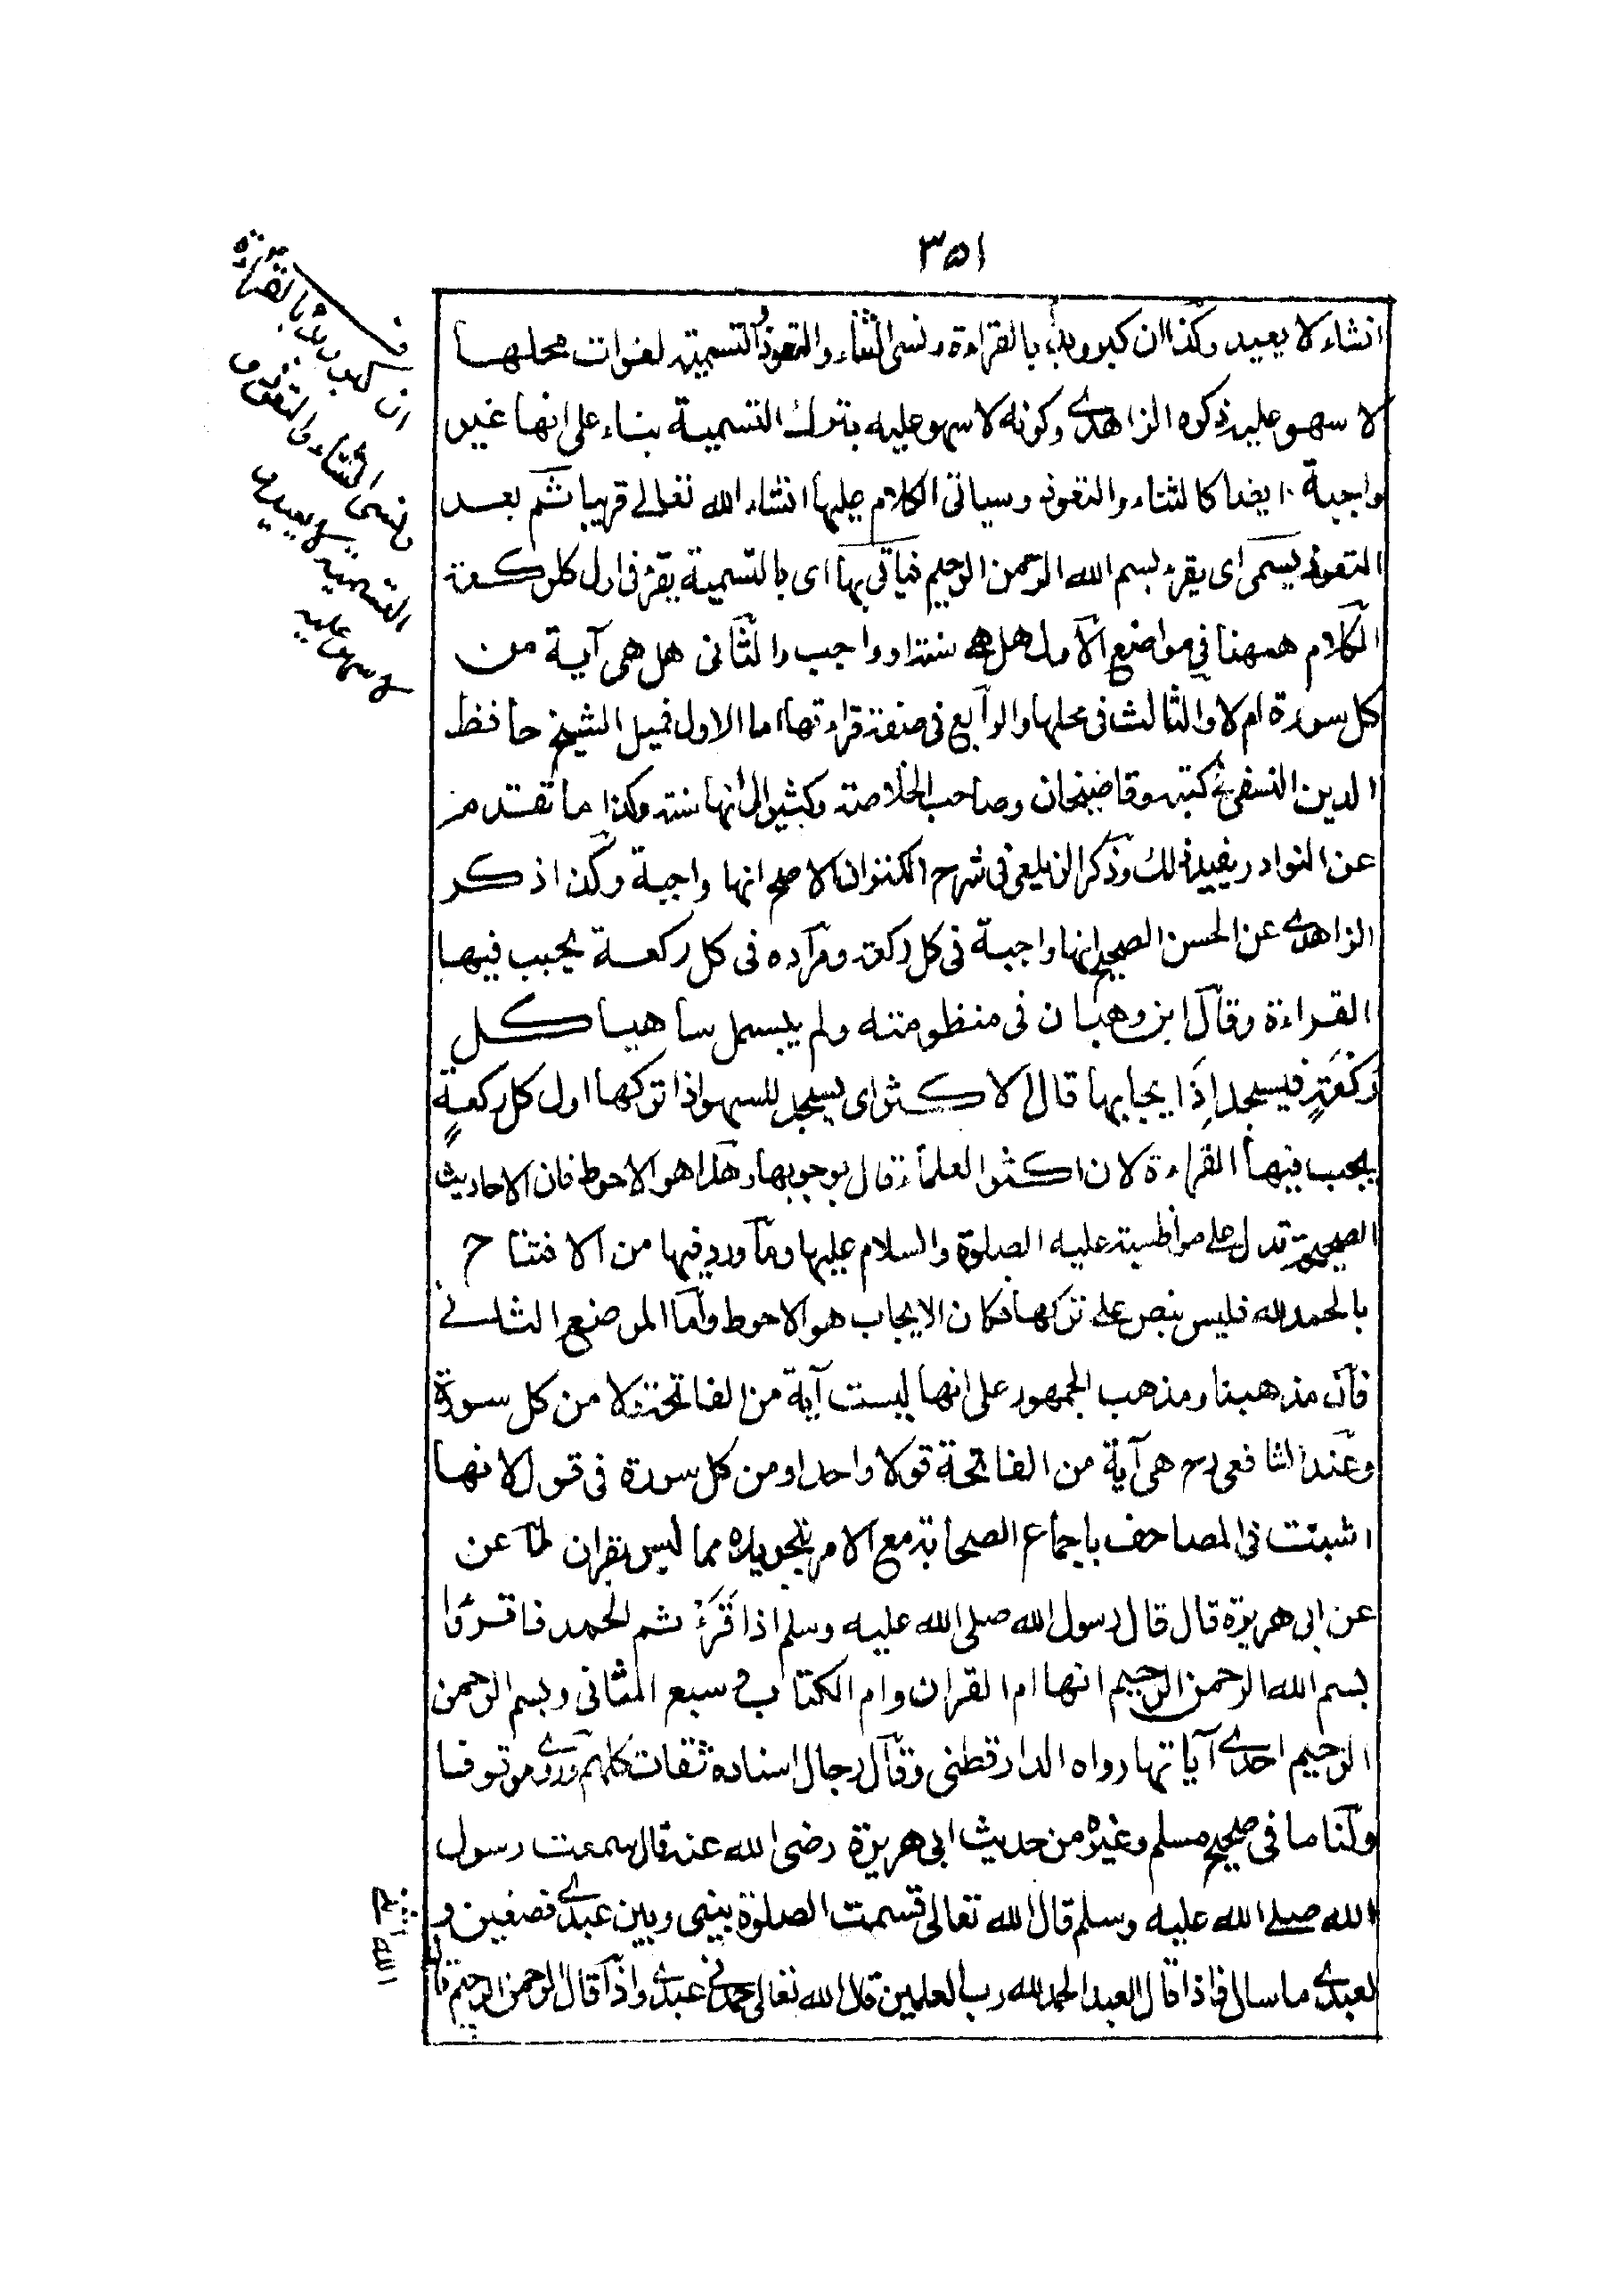 ٣٥١
انشاء لا يعيد وكذا ان كبر وبدء بالقراءة ونسى الثناء والتعوذ والتسمية لفوات محلها
لا سهو عليه ذكره الزاهدى وكونه لا سهو عليه بترك التسمية بناء على انها غير
واجبة ايضا كالثناء والتعوذ وسياتى الكلام عليها انشاء الله تعالى قريبا ثم بعد
التعوذ يسمى اى يقرء بسم الله الرحمن الرحيم فياتى بها اى بالتسمية يقرء فى اول كل ركعة
الكلام ههنا فى مواضع الاول هل هى سنة او واجب والثانى هل هى آية من
كل سورة ام لا والثالث فى محلها والرابع فى صفة قراءتها اما الاول فميل الشيخ حافظ
الدين النسفى فى كتبه وقاضيخان وصاحب الخلاصة وكثير الى انها سنة وكذا ما تقدم من
عن النوادر يفيد ذلك وذكر الزيلعى فى شرح الكنز ان الاصح انها واجبة وكذا ذكر
الزاهدى عن الحسن الصحيح انها واجبة فى كل ركعة ومراده فى كل ركعة يجب فيها
القراءة وقال ابن وهبان فى منظومته ولم يبسمل ساهيا كل
ركعة فيسجد اذا يجابها قال الاكثر اى يسجد للسهو اذا تركها اول كل ركعة
يجب فيها القراءة لان اكثر العلماء قال بوجوبها وهذا هو الاحوط فان الاحاديث
الصحيحة تدل على مواظبته عليه الصلوة والسلام عليها وما ورد فيها من الافتتاح
بالحمد لله فليس بنص على تركها فكان الايجاب هو الاحوط واما الموضع الثانى
فان مذهبنا ومذهب الجمهور على انها ليست آية من الفاتحة ولا من كل سورة
وعند الشافعى رح هى آية من الفاتحة قولا واحدا ومن كل سورة فى قول لانها
اثبتت فى المصاحف باجماع الصحابة مع الامر بتجويده مما ليس بقران لما عن
عن ابى هريرة قال قال رسول الله صلى الله عليه وسلم اذا قرء تم الحمد فاقرؤا
بسم الله الرحمن الرحيم انها ام القران وام الكتاب و سبع المثانى وبسم الرحمن
الرحيم احدى آياتها رواه الدارقطنى وقال رجال اسناده ثقات كلهم وروى موقوفا
ولنا ما فى صحيح مسلم وغيره من حديث ابى هريرة رضى الله عنه قال سمعت رسول
الله صلى الله عليه وسلم قال الله تعالى قسمت الصلوة بينى وبين عبدى نصفين و
لعبدى ما سال فاذا قال العبد الحمد لله رب العلمين قال الله تعالى حمدنى عبدى واذا قال الرحمن الرحيم قال
ان كبر وبدء بالقراءة
ونسى الثناء والتعوذ و
التسمية لا يعيد و
لا سهو عليه
الله